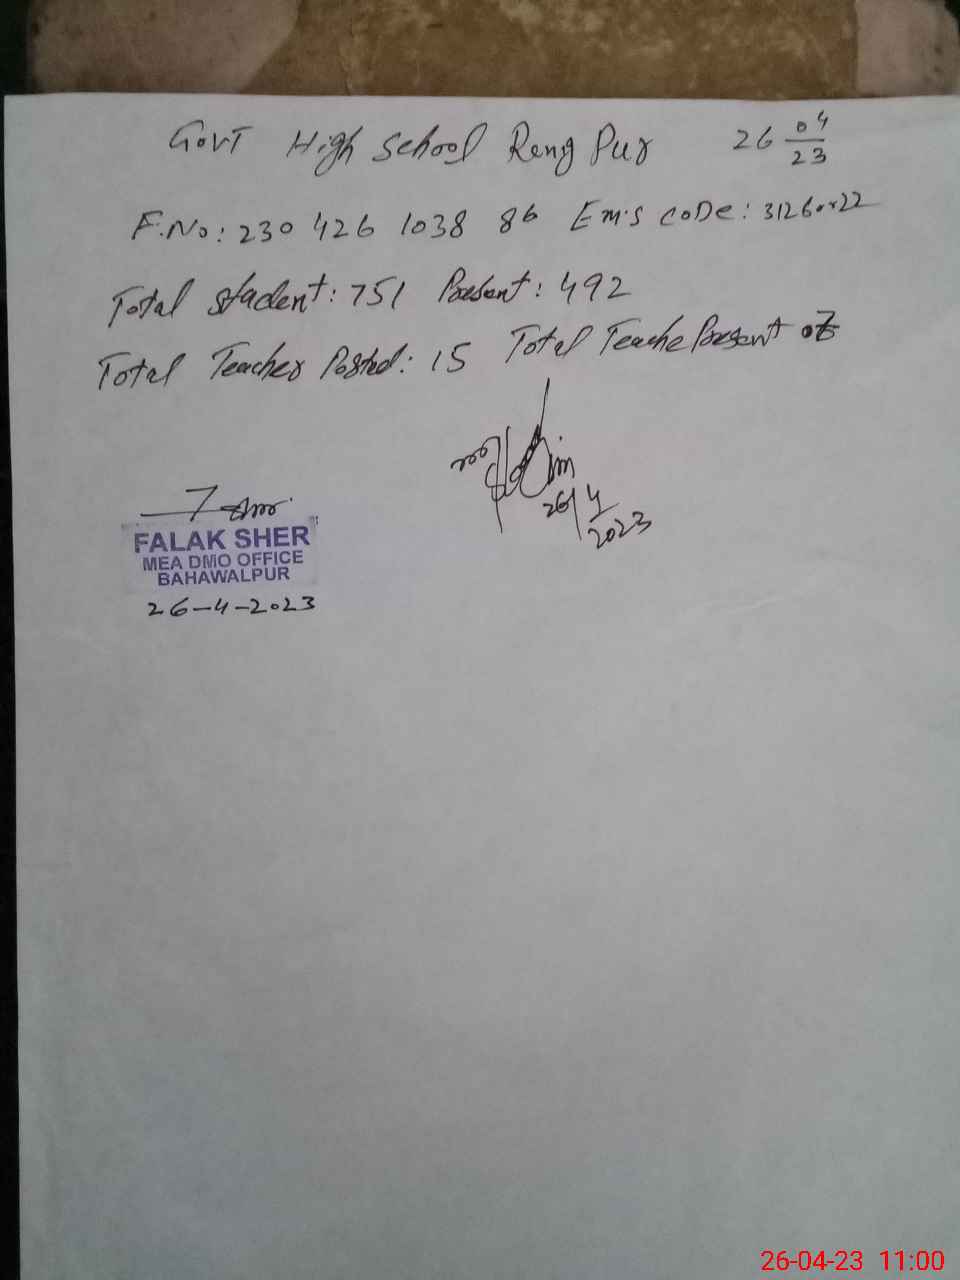 Govt High School Reng Pur 26 04/23
F.No: 230 426 1038 86 Em.s coDe: 31260022
Total student: 751 Present: 492
Total Teacher Posted: 15 Total Teache Present
26/4/2023
FALAK SHER
MEA DMO OFFICE
BAHAWALPUR
26-4-2023
26-04-23 11:00